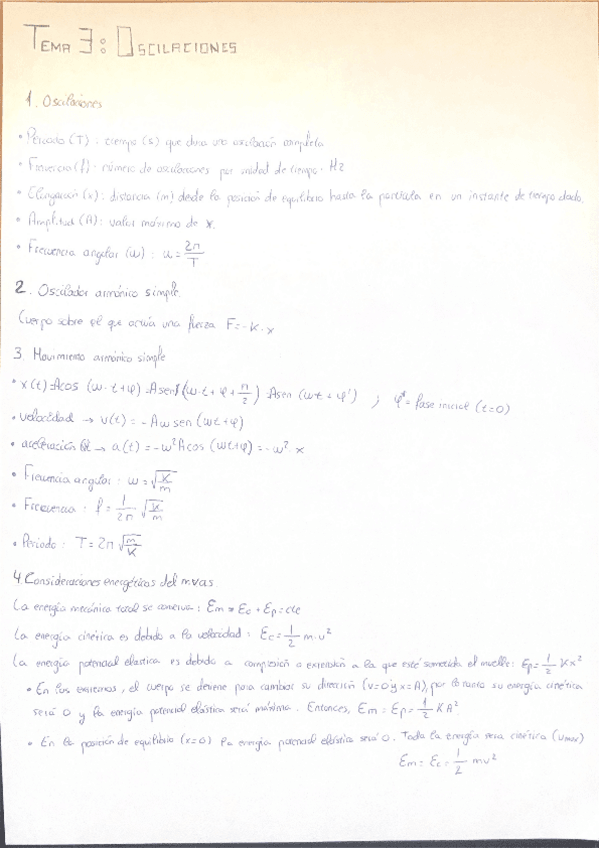 TEMA 3: OSCILACIONES
1. Oscilaciones
• Periodo (T): tiempo (s) que dura una oscilación completa
• Frecuencia (f): número de oscilaciones por unidad de tiempo. Hz
• Elongación (x): distancia (m) desde la posición de equilibrio hasta la partícula en un instante de tiempo dado.
• Amplitud (A): valor máximo de x.
• Frecuencia angular (ω): ω = 2π/T
2. Oscilador armónico simple.
Cuerpo sobre el que actúa una fuerza F = -K · x
3. Movimiento armónico simple
• x(t) = A cos (ω · t + φ) = A sen (ω · t + φ + π/2) = A sen (ωt + φ') ; φ' = fase inicial (t=0)
• velocidad → v(t) = - Aω sen (ωt + φ)
• aceleración → a(t) = -ω² A cos (ωt + φ) = -ω² · x
• Frecuencia angular: ω = √(K/m)
• Frecuencia: f = 1/2π √(K/m)
• Periodo: T = 2π √(m/K)
4. Consideraciones energéticas del m.v.a.s.
La energía mecánica total se conserva: Em = Ec + Ep = cte
La energía cinética es debida a la velocidad: Ec = 1/2 m · v²
La energía potencial elástica es debida a compresión o extensión a la que esté sometida el muelle: Ep = 1/2 K x²
• En los extremos, el cuerpo se detiene para cambiar su dirección (v=0 y x=A), por lo tanto su energía cinética
será 0 y la energía potencial elástica será máxima. Entonces, Em = Ep = 1/2 K A²
• En la posición de equilibrio (x=0) la energía potencial elástica será 0. Toda la energía será cinética (vmax)
Em = Ec = 1/2 mv²